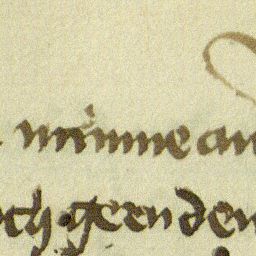 minne an
och geen den